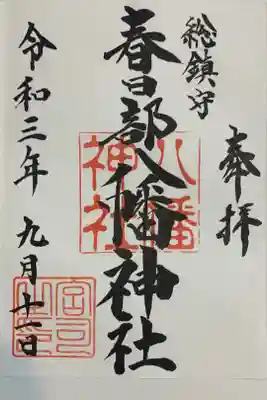 奉拝
総鎮守
春日部八幡神社
八幡神社
令和三年九月十一日